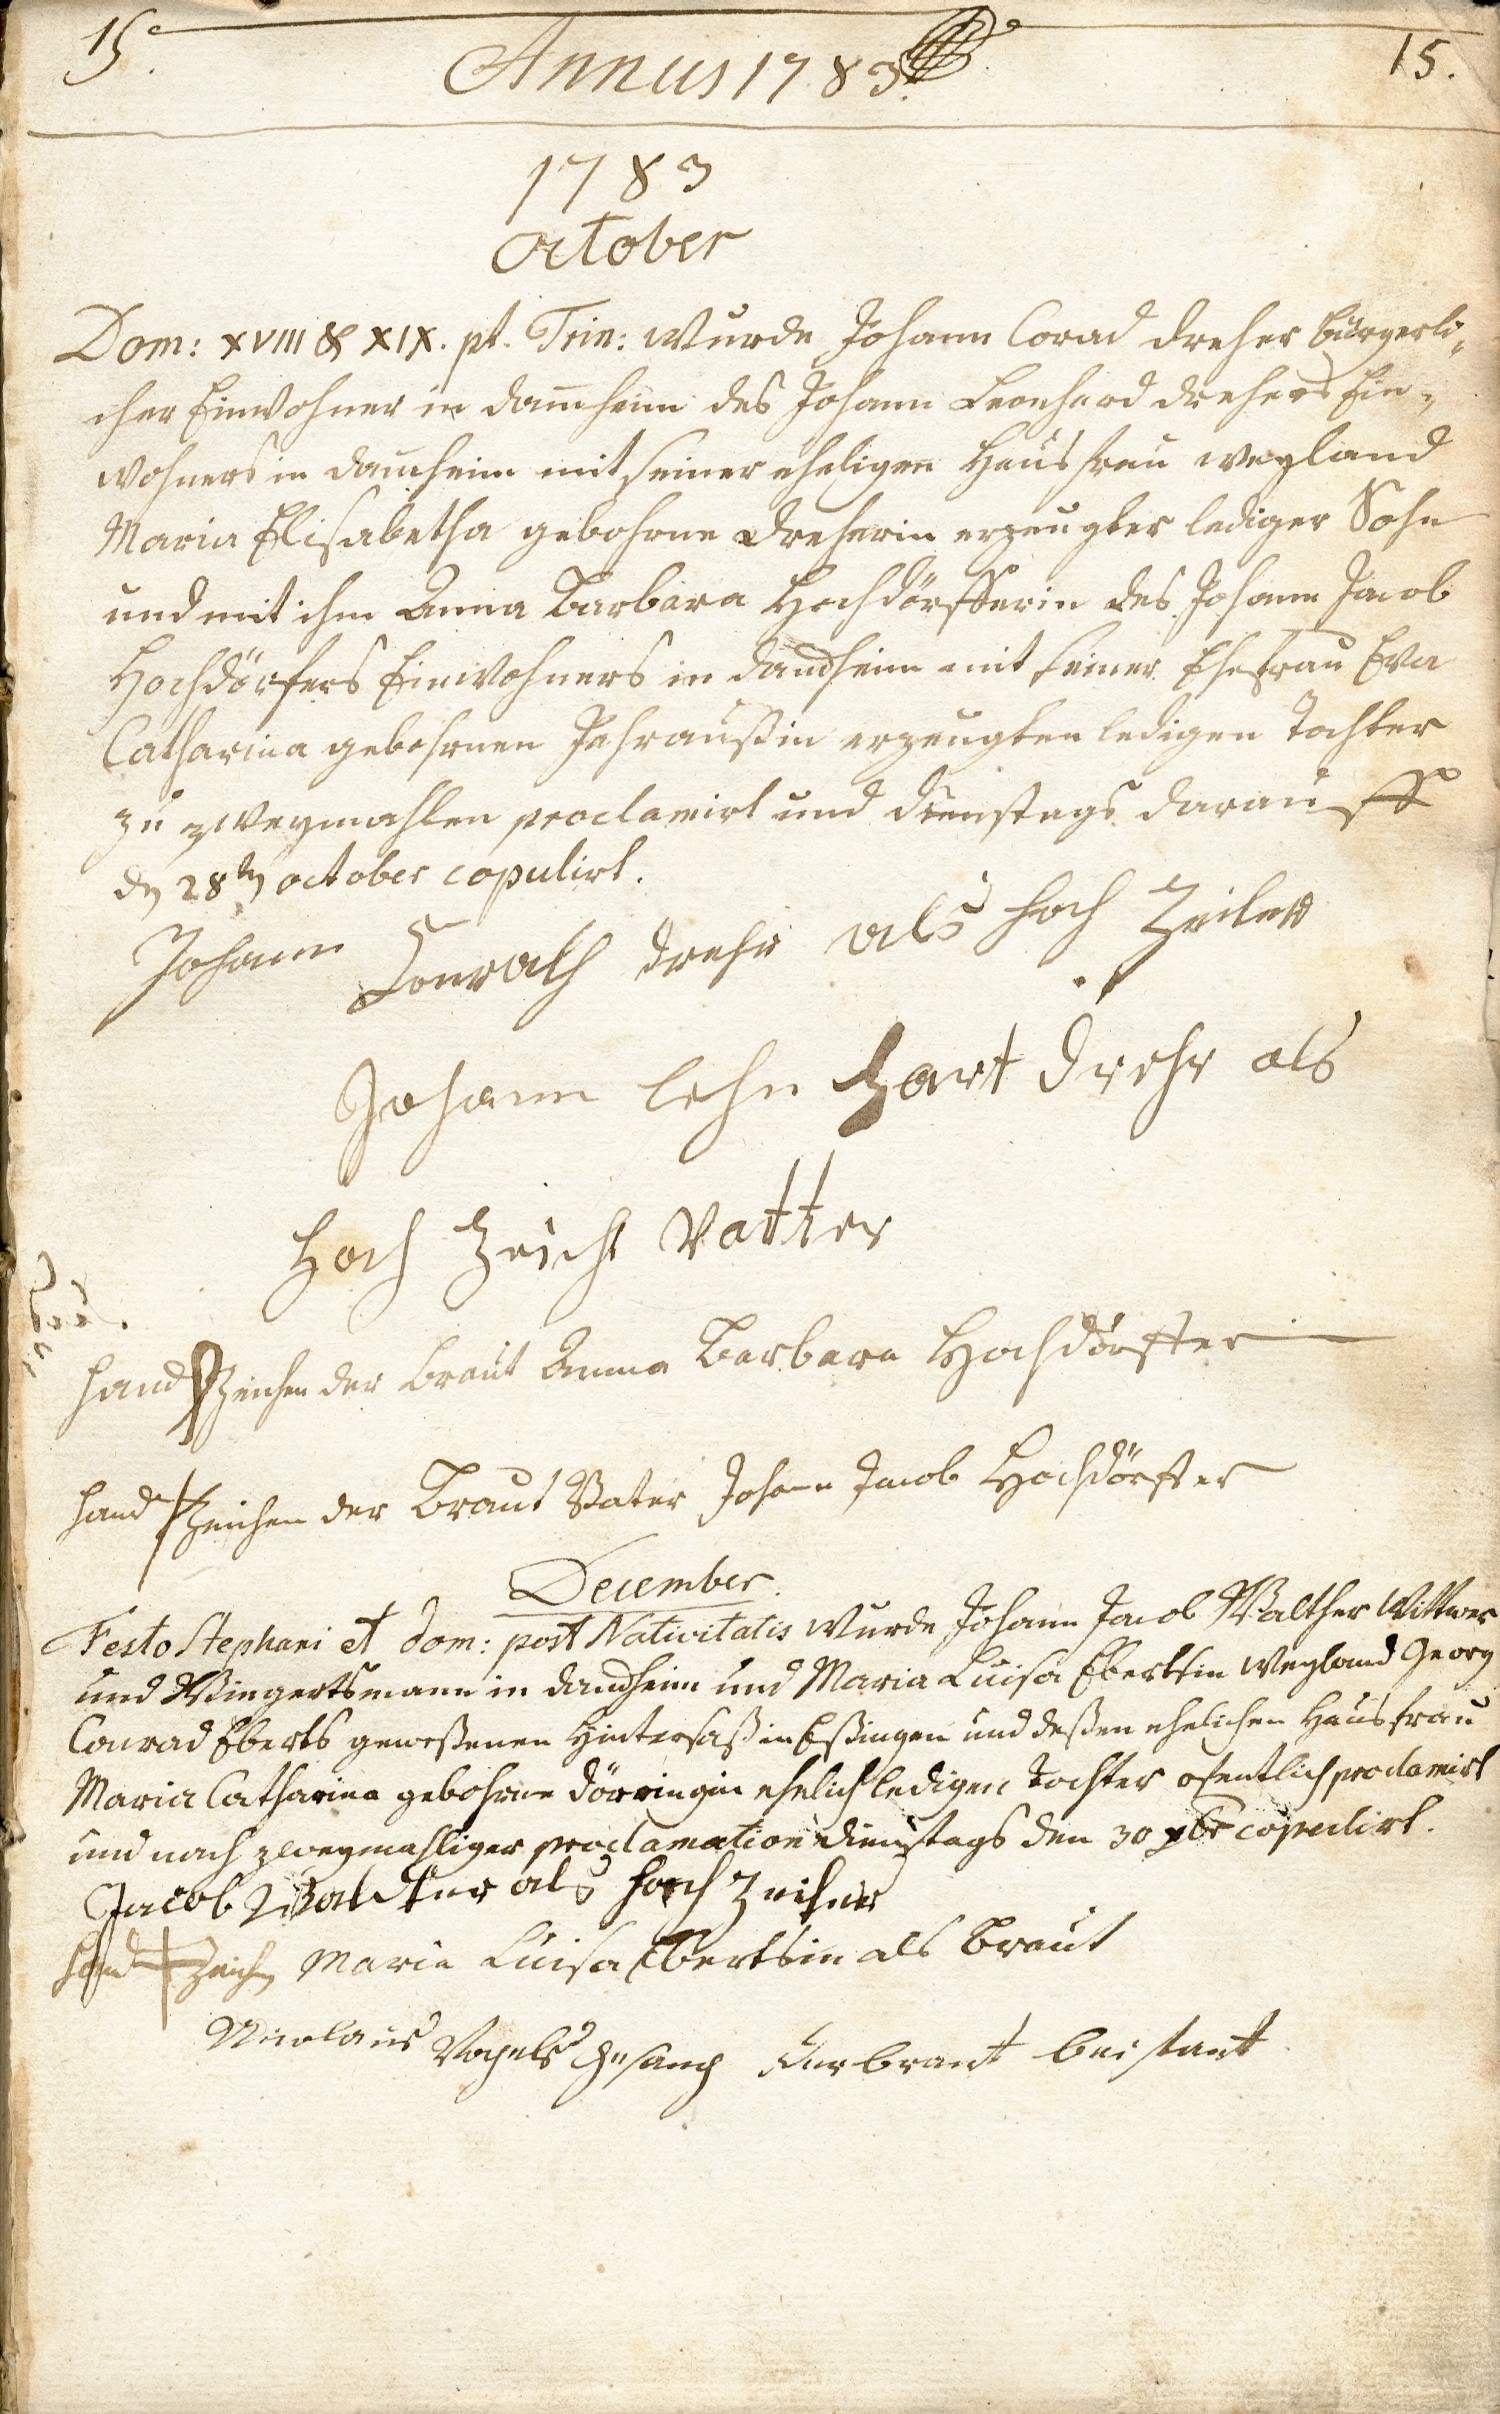 15. Annus 1783. 15.
1783
October
Dom: XVIII & XIX. pt. Trin: wurde Johann Corad Dreher bürgerli-
cher Einwohner in Dam̄heim des Johann Leonhard Drehers Ein-
wohners in Dam̄heim mit seiner eheligen Hausfrau weyland
Maria Elisabetha gebohrne Dreherin erzeugter lediger Sohn
und mit ihm Anna Barbara Hochdörfferin des Johann Jacob
Hochdörfers Einwohners in Damheim mit seiner Ehefrau Eva
Catharina gebohrnen Jahraußin erzeugten ledigen Tochter
zu zweymahlen proclamirt und Dienstags darauff
dn 28ten october copulirt.
Johann Conrath Drehr als hoch Zeiter
Johann lehn hart Drehr als
hoch Zeicht Vatter
hand Zeichen der Braut Anna Barbara Hochdörffer
hand Zeichen der Braut Vater Johann Jacob Hochdörffer
December.
Festo Stephani et Dom: post Nativitatis wurde Johann Jacob Walther Wittwer
und Wingertsmann in Damheim und Maria Luisa Ebertsin weyland Georg
Conrad Eberts geweßenen Hintersaß in Eßingen und deßen ehelichen Hausfrau
Maria Catharina gebohrne Dörringin ehelich ledigen Tochter ofentlich proclamirt
und nach zweymahliger proclamation Dienstags den 30 xbr copulirt.
Jacob Waldter als hoch Zeiter
hand Zeichen Maria Luisa Ebertsin als Braut
Nicolaus Vogelsgesang der braut beistant